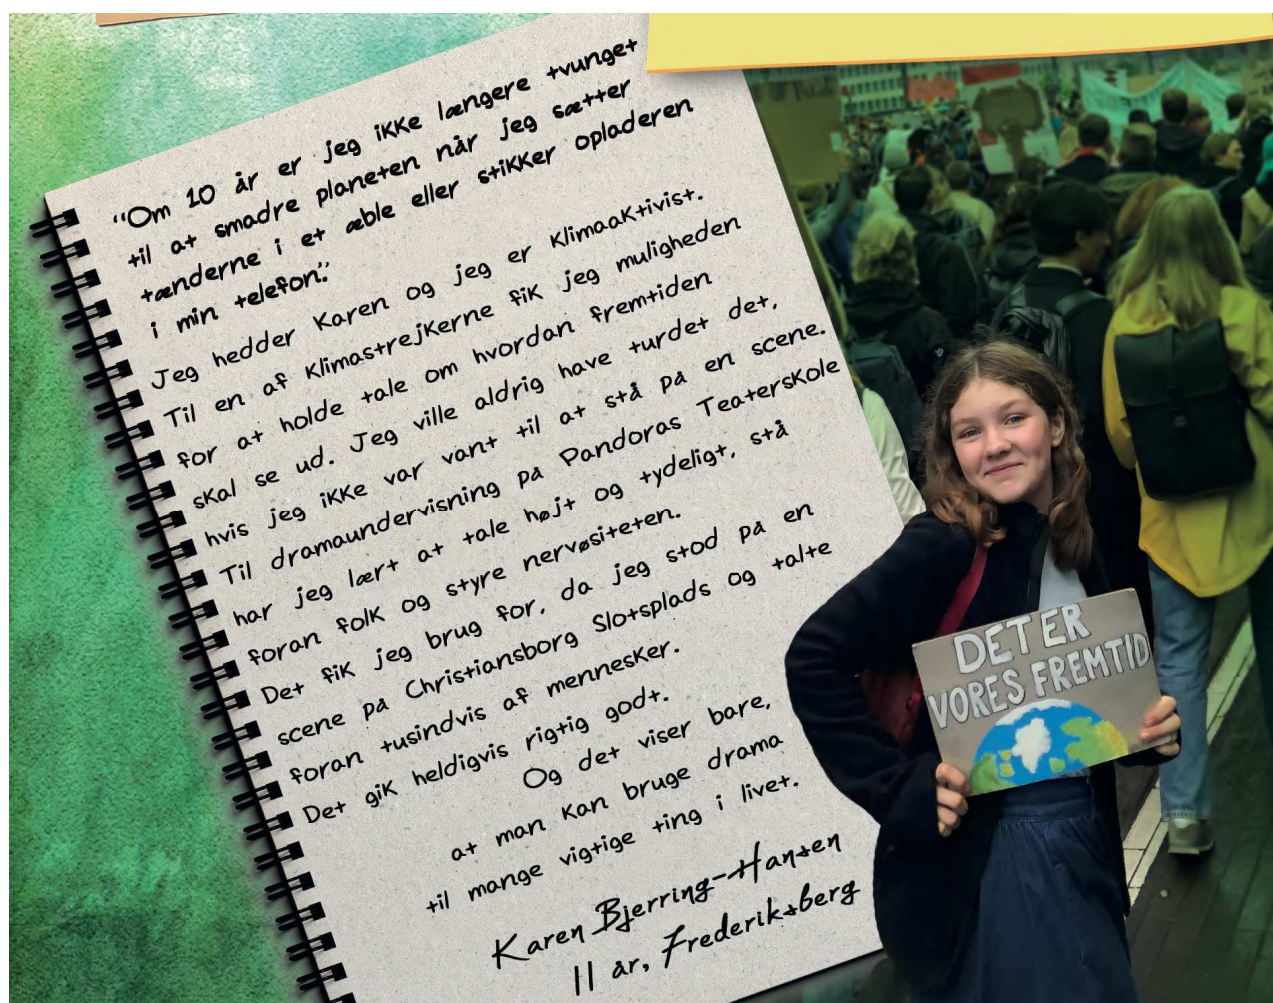 "Om 10 år er jeg ikke længere tvunget
til at smadre planeten når jeg sætter
tænderne i et æble eller stikker opladeren
i min telefon."
Jeg hedder Karen og jeg er klimaaktivist.
Til en af klimastrejkerne fik jeg muligheden
for at holde tale om hvordan fremtiden
skal se ud. Jeg ville aldrig have turdet det,
hvis jeg ikke var vant til at stå på en scene.
Til dramaundervisning på Pandoras Teaterskole
har jeg lært at tale højt og tydeligt, stå
foran folk og styre nervøsiteten.
Det fik jeg brug for, da jeg stod på en
scene på Christiansborg Slotsplads og talte
foran tusindvis af mennesker.
Det gik heldigvis rigtig godt.
Og det viser bare,
at man kan bruge drama
til mange vigtige ting i livet.
Karen Bjerring-Hansen
11 år, Frederiksberg
DET ER
VORES FREMTID